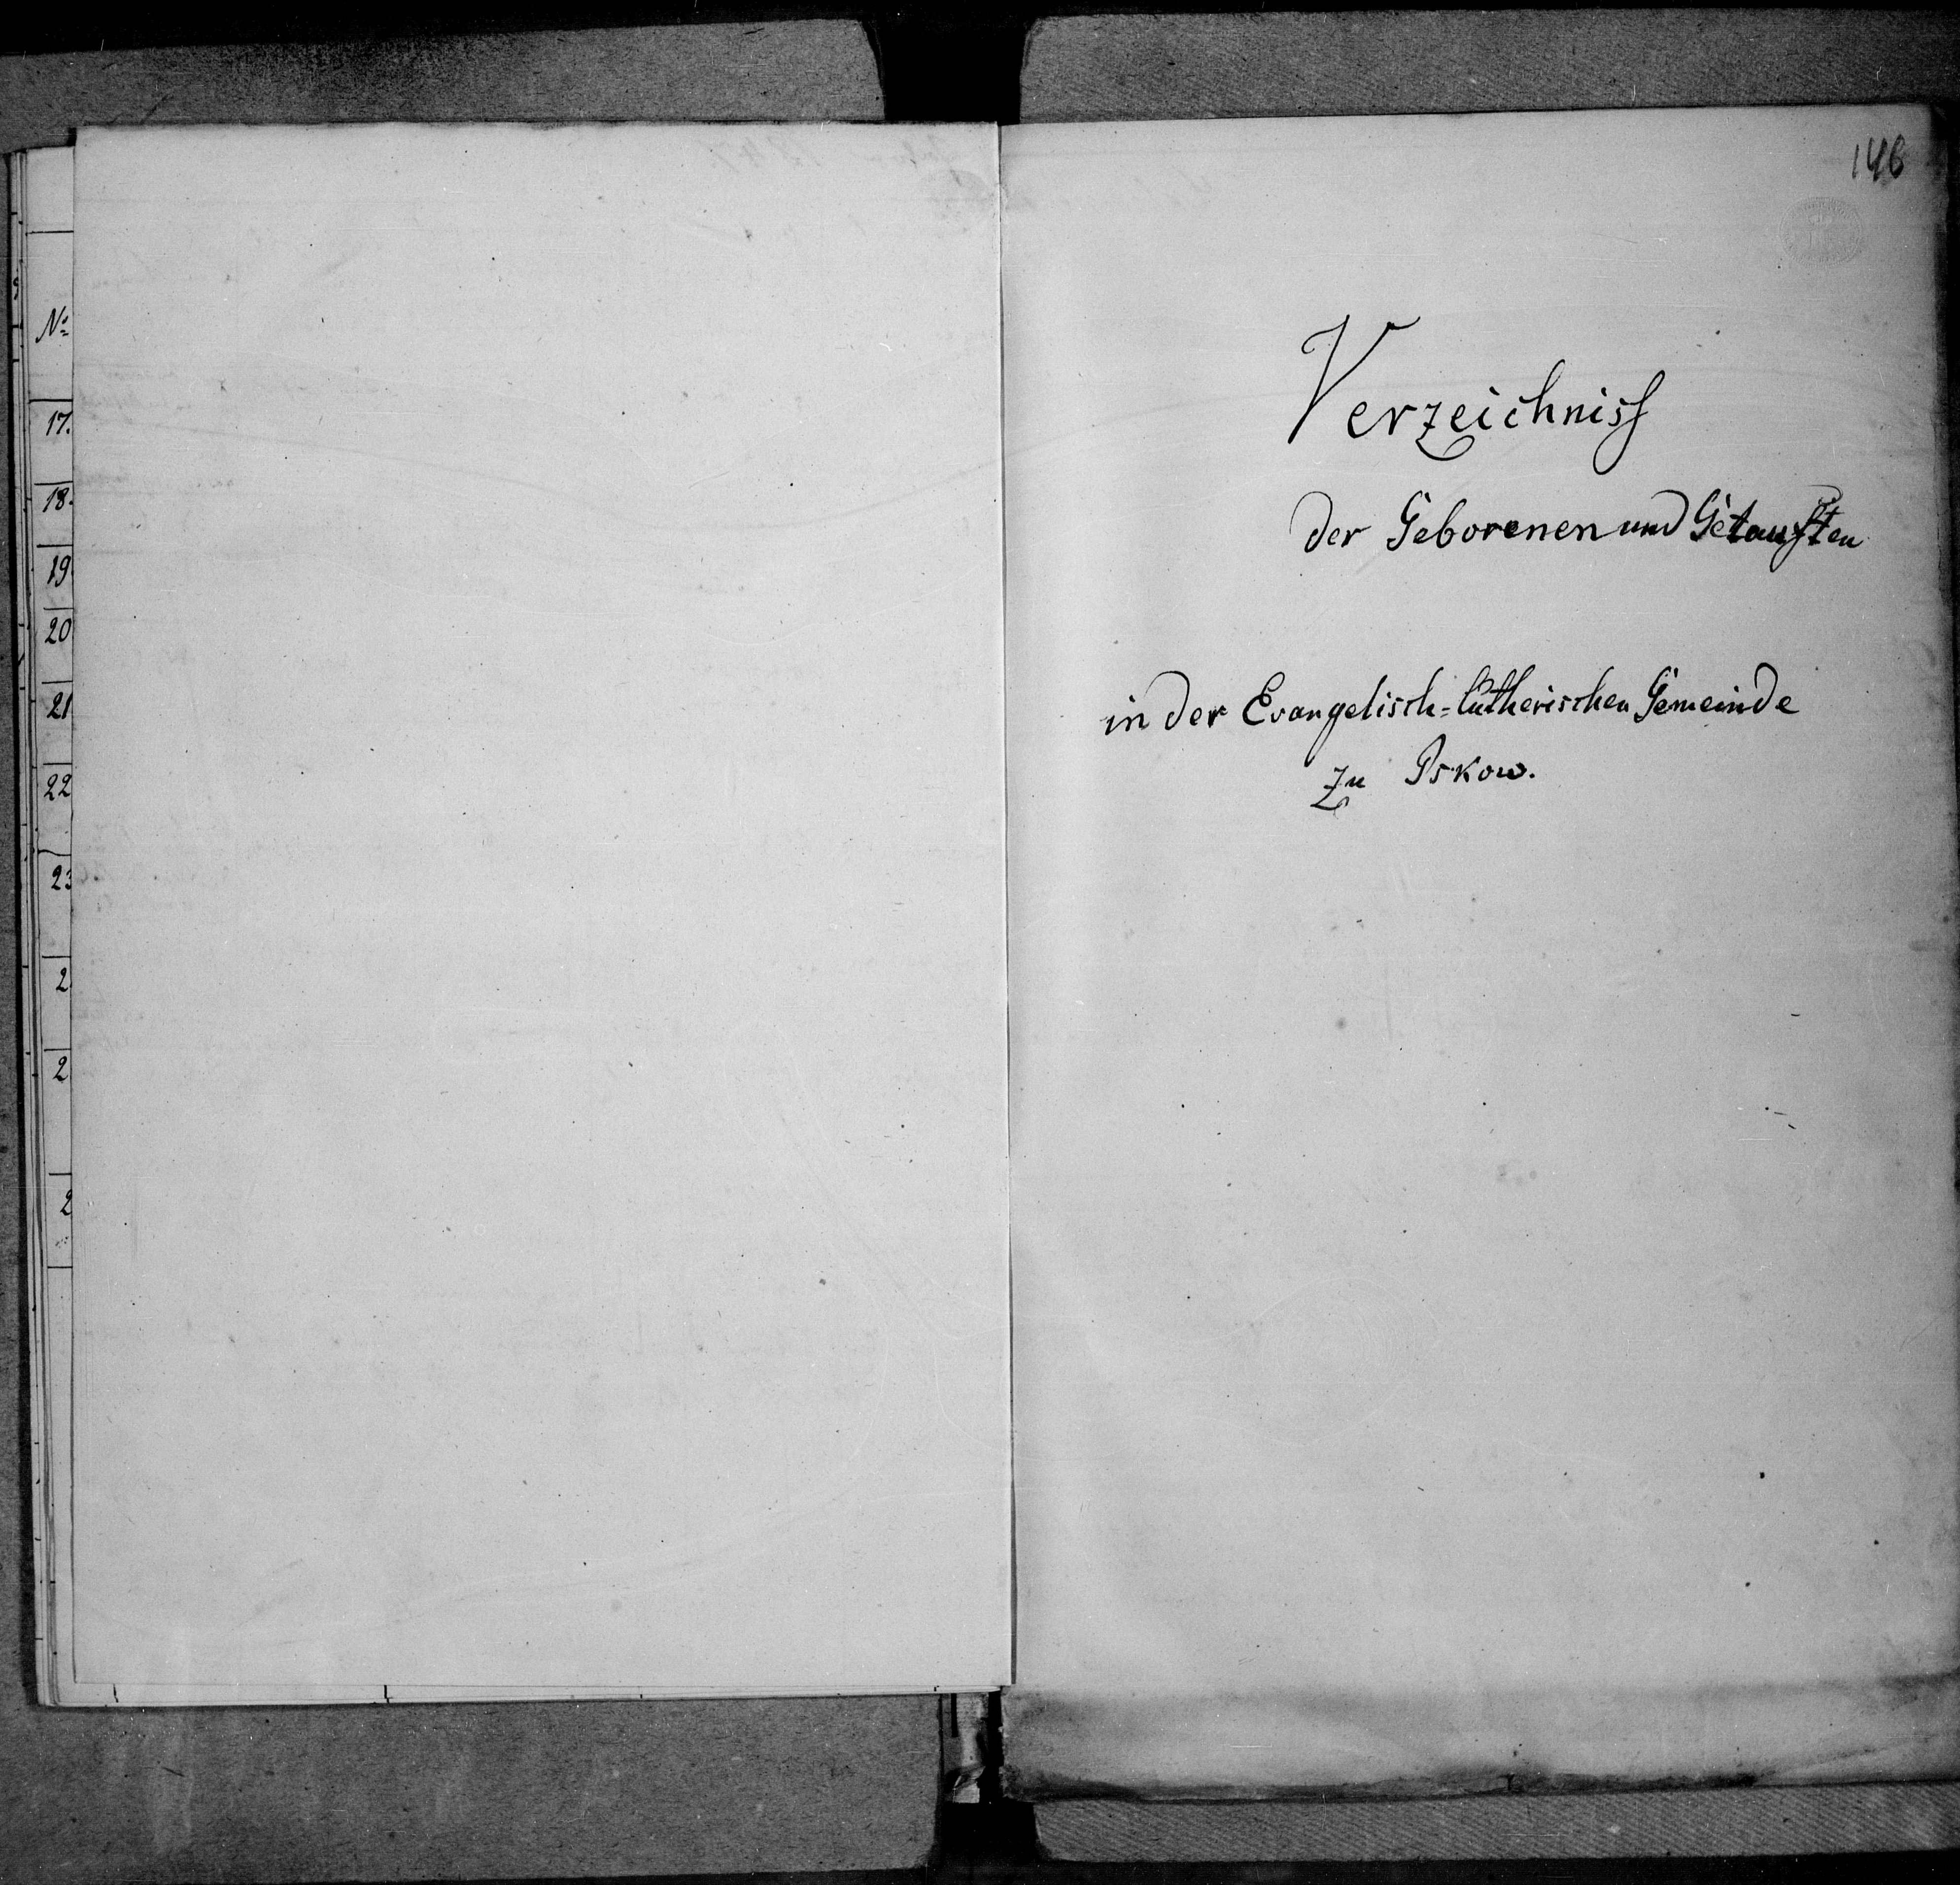 №
17.
18.
19
20
21
22
23
2
2
2
146
Verzeichniss
der Geborenen und Getauften
in der Evangelisch=lutherischen Gemeinde
zu Pskow.